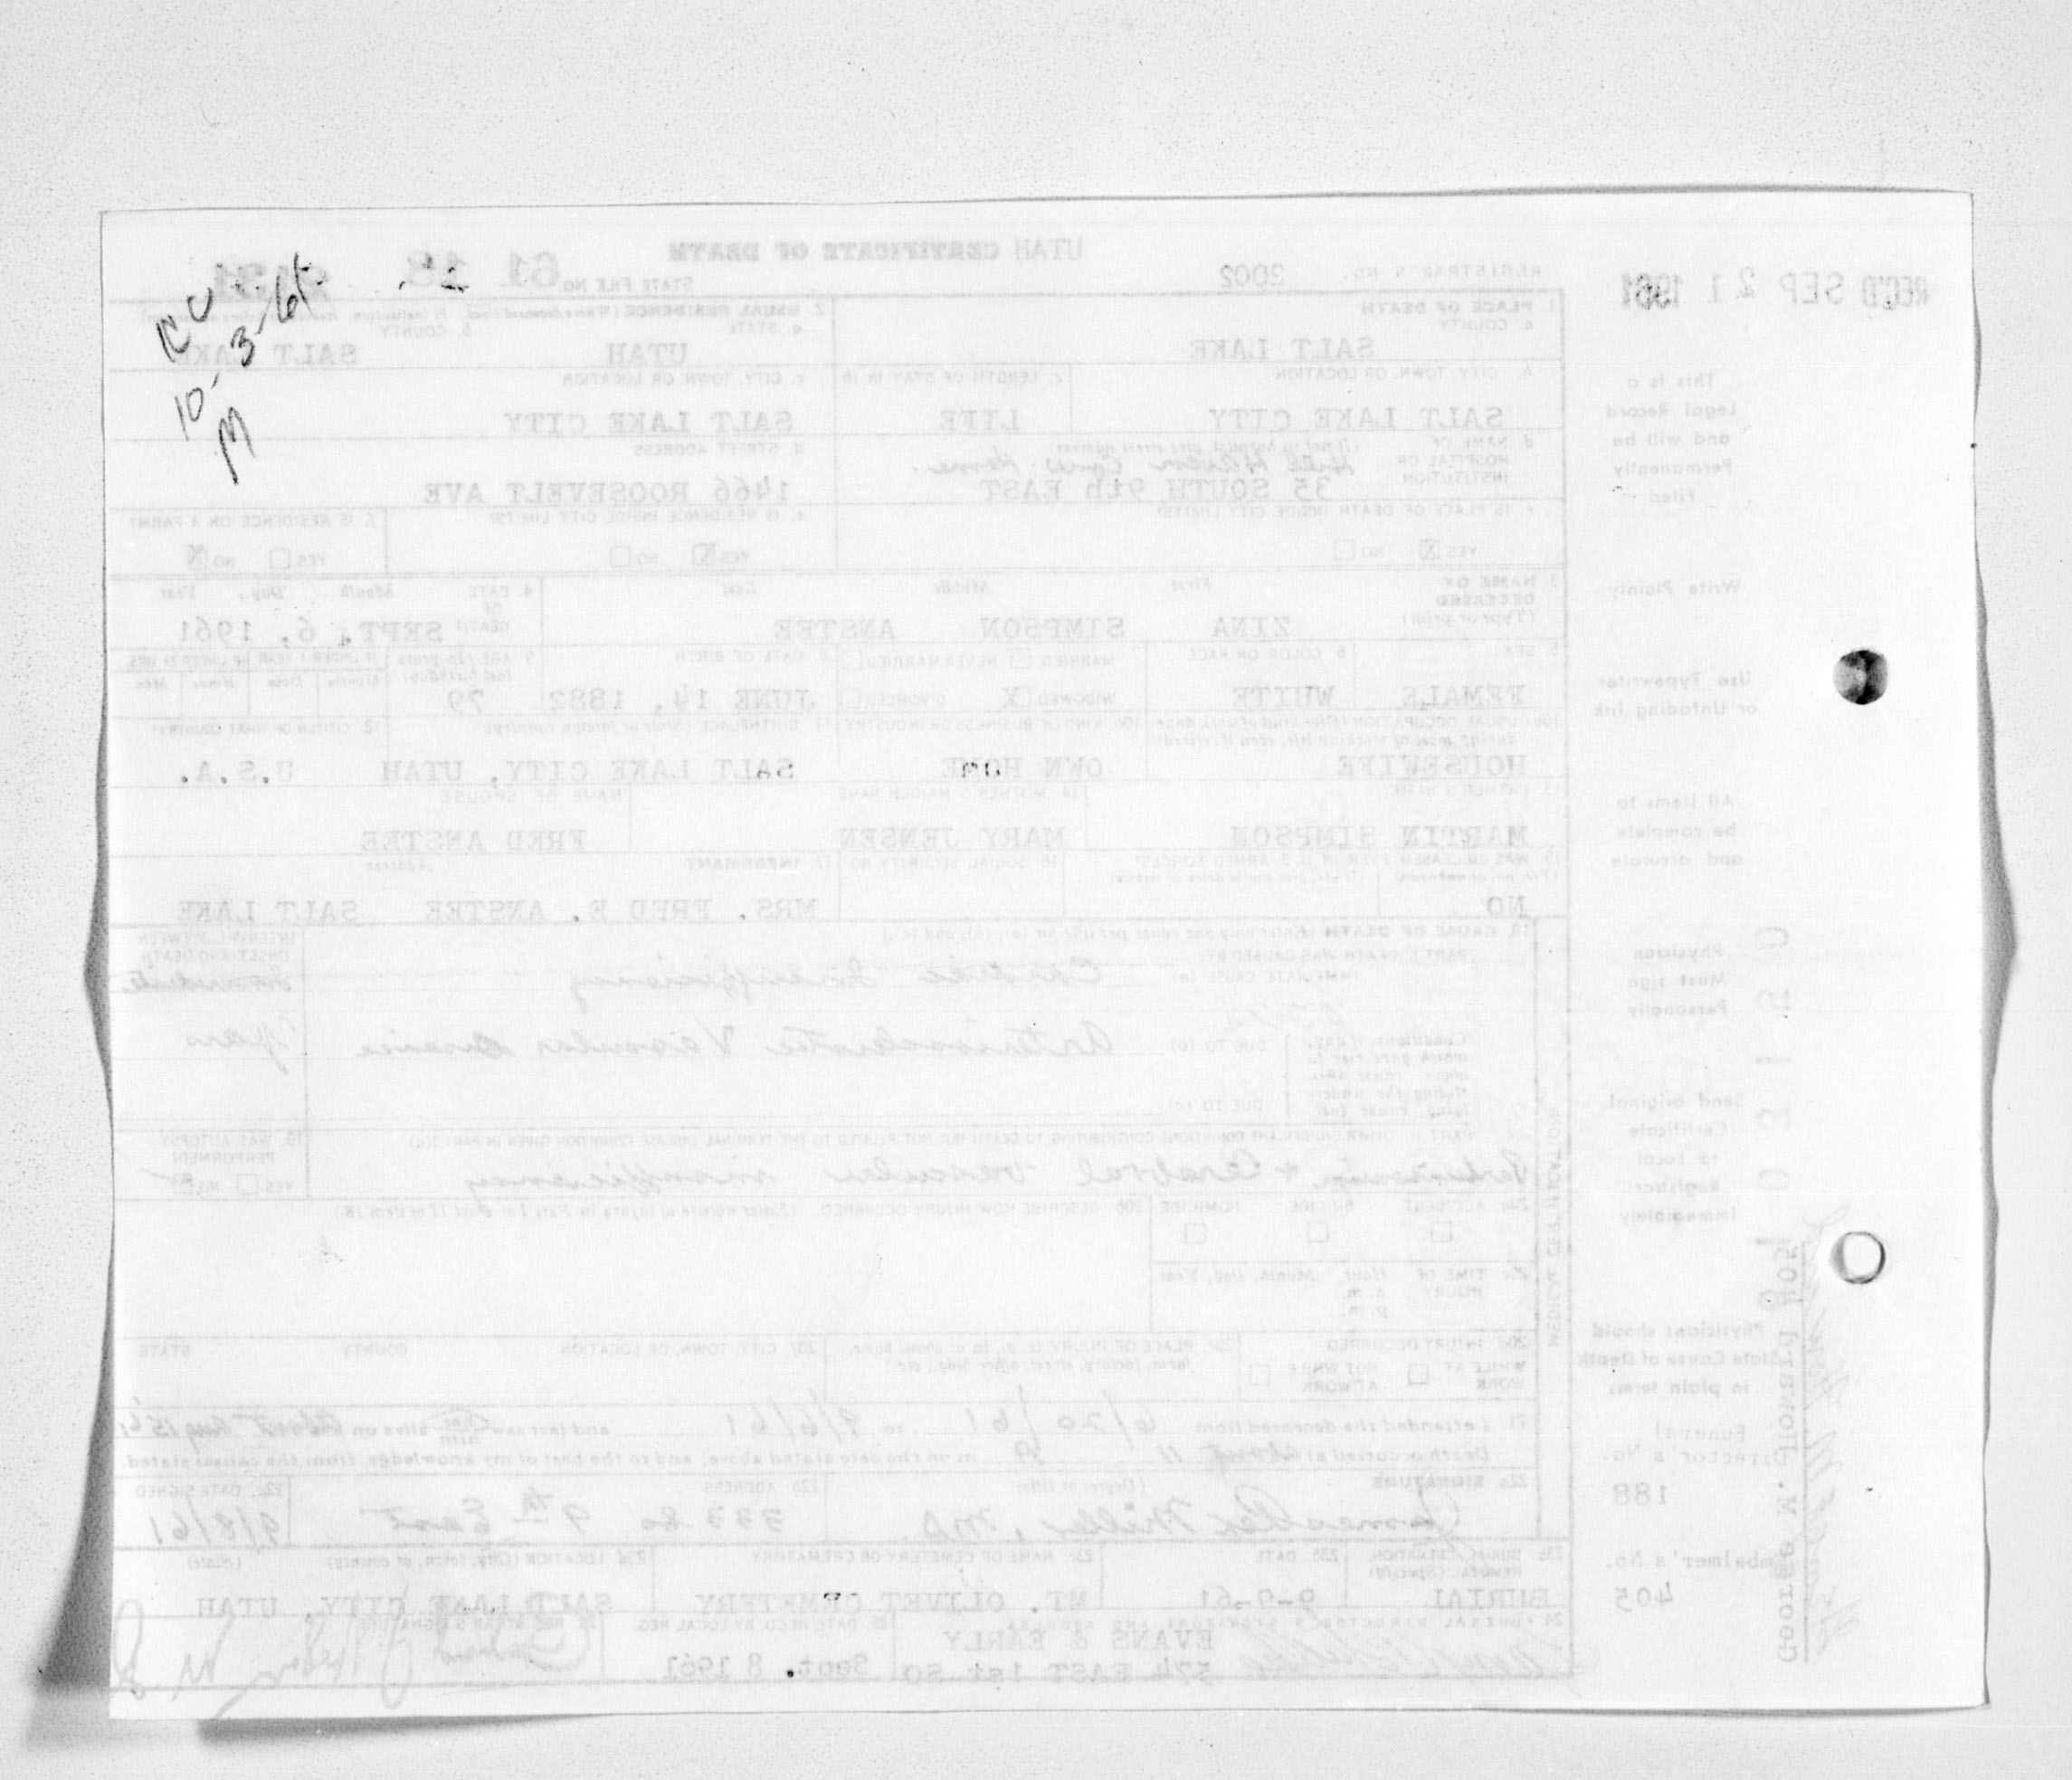 RC
10-3-61
M
UTAH CERTIFICATE OF DEATH
REC'D SEP 21 1961
REGISTRAR'S NO. 2002
STATE FILE NO. 61 18
1. PLACE OF DEATH
a. COUNTY
SALT LAKE
2. USUAL RESIDENCE (Where deceased lived. If institution, residence before admission)
a. STATE
UTAH
b. COUNTY
SALT LAKE
This is a
Legal Record
and will be
Permanently
Filed
b. CITY, TOWN, OR LOCATION
SALT LAKE CITY
c. LENGTH OF STAY IN 1b
LIFE
c. CITY, TOWN, OR LOCATION
SALT LAKE CITY
d. NAME OF HOSPITAL OR INSTITUTION
(If not in hospital, give street address)
Hill Haven Conv. Home.
35 SOUTH 9th EAST
d. STREET ADDRESS
1466 ROOSEVELT AVE
e. IS PLACE OF DEATH INSIDE CITY LIMITS?
YES X NO
e. IS RESIDENCE INSIDE CITY LIMITS?
YES X NO
f. IS RESIDENCE ON A FARM?
YES NO X
Write Plainly
3. NAME OF DECEASED
(Type or print)
First Middle Last
ZINA SIMPSON ANSTEE
4. DATE OF DEATH
Month Day Year
SEPT. 6, 1961
Use Typewriter
or Unfading Ink
5. SEX
FEMALE
6. COLOR OR RACE
WHITE
7. MARRIED NEVER MARRIED
WIDOWED X DIVORCED
8. DATE OF BIRTH
JUNE 14, 1882
9. AGE (In years last birthday)
79
IF UNDER 1 YEAR
Months Days
IF UNDER 24 HRS.
Hours Min.
10a. USUAL OCCUPATION (Give kind of work done during most of working life, even if retired)
HOUSEWIFE
10b. KIND OF BUSINESS OR INDUSTRY
OWN HOME
11. BIRTHPLACE (State or foreign country)
SALT LAKE CITY, UTAH
12. CITIZEN OF WHAT COUNTRY?
U.S.A.
All items to
be complete
and accurate
13. FATHER'S NAME
MARTIN SIMPSON
14. MOTHER'S MAIDEN NAME
MARY JENSEN
NAME OF SPOUSE
FRED ANSTEE
15. WAS DECEASED EVER IN U.S. ARMED FORCES?
(Yes, no, or unknown) (If yes, give war or dates of service)
NO
16. SOCIAL SECURITY NO.
17. INFORMANT Address
MRS. FRED E. ANSTEE SALT LAKE
Physician
Must sign
Personally
MEDICAL CERTIFICATION
18. CAUSE OF DEATH (Enter only one cause per line for (a), (b), and (c).)
PART I. DEATH WAS CAUSED BY:
IMMEDIATE CAUSE (a) Cardiac Insufficiency
INTERVAL BETWEEN ONSET AND DEATH
Immediate
Conditions, if any, which gave rise to above cause (a), stating the underlying cause last.
DUE TO (b) Arteriosclerotic Vascular Disease
years
DUE TO (c)
Send original
Certificate
to Local
Registrar
Immediately
PART II. OTHER SIGNIFICANT CONDITIONS CONTRIBUTING TO DEATH BUT NOT RELATED TO THE TERMINAL DISEASE CONDITION GIVEN IN PART I(a)
Parkinson + Cerebral vascular insufficiency
19. WAS AUTOPSY PERFORMED?
YES NO
20a. ACCIDENT SUICIDE HOMICIDE
20b. DESCRIBE HOW INJURY OCCURRED. (Enter nature of injury in Part I or Part II of item 18.)
20c. TIME OF INJURY
Hour Month, Day, Year
a.m.
p.m.
Physicians should
State Cause of Death
in plain terms
20d. INJURY OCCURRED
WHILE AT WORK NOT WHILE AT WORK
20e. PLACE OF INJURY (e. g., in or about home, farm, factory, street, office bldg., etc.)
20f. CITY, TOWN, OR LOCATION COUNTY STATE
21. I attended the deceased from 6/20/61 to 9/6/61 and last saw her/him alive on about Aug 15 '61
Death occurred at about 11 P m on the date stated above; and to the best of my knowledge, from the causes stated.
Funeral
Director's No.
188
22a. SIGNATURE (Degree or title)
James Rex Miller, M.D.
22b. ADDRESS
333 So 9th East
22c. DATE SIGNED
9/8/61
Embalmer's No.
405
23a. BURIAL, CREMATION, REMOVAL (Specify)
BURIAL
23b. DATE
9-9-61
23c. NAME OF CEMETERY OR CREMATORY
MT. OLIVET CEMETERY
23d. LOCATION (City, town, or county) (State)
SALT LAKE CITY, UTAH
24. FUNERAL DIRECTOR'S SIGNATURE AND ADDRESS
EVANS & EARLY
574 EAST 1st SO
25. DATE RECD. BY LOCAL REG.
Sept. 8 1961
26. REGISTRAR'S SIGNATURE